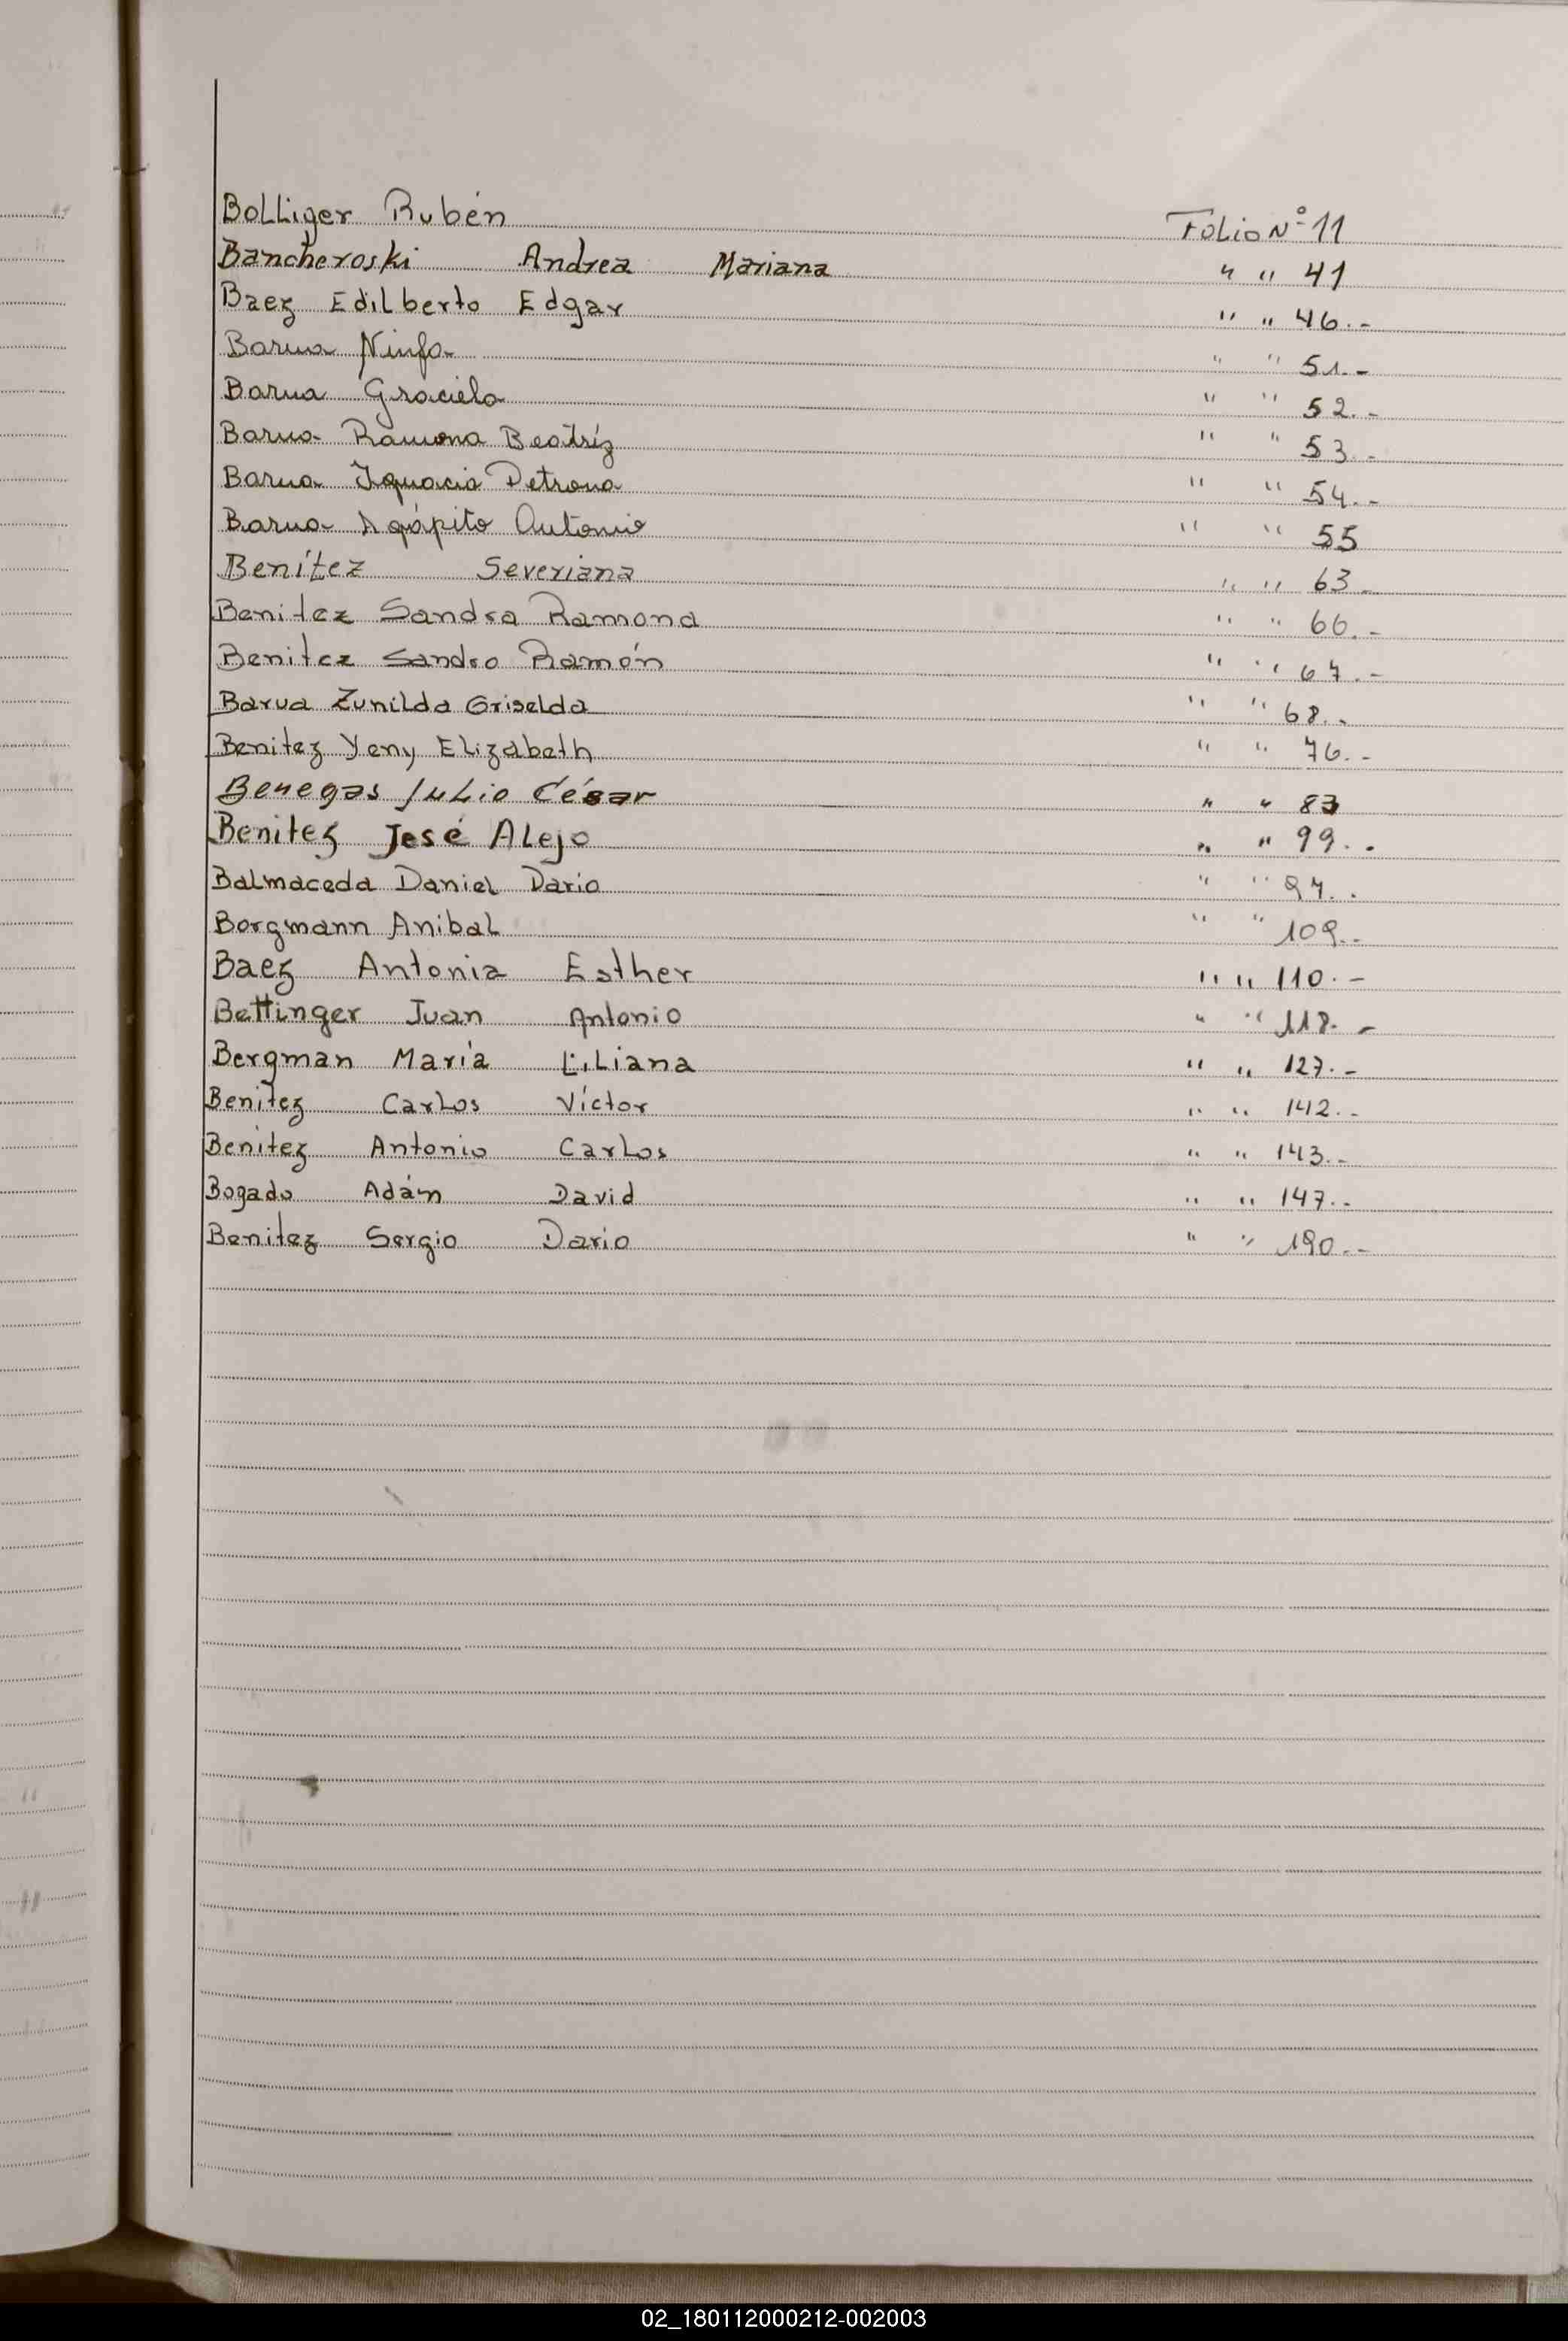 Bolliger Rubén Folio Nº 11
Bancheroski Andrea Mariana " " 41
Baez Edilberto Edgar " " 46.-
Barua Ninfa " " 51.-
Barua Graciela " " 52.-
Barua Ramona Beatríz " " 53.-
Barua Ignacia Petrona " " 54.-
Barua Agápito Antonio " " 55
Benítez Severiana " " 63.-
Benitez Sandra Ramona " " 66.-
Benitez Sandro Ramón " " 67.-
Barua Zunilda Griselda " " 68.-
Benitez Yeny Elizabeth " " 76.-
Benegas Julio César " " 83
Benitez José Alejo " " 99.-
Balmaceda Daniel Dario " "
Borgmann Anibal " " 109.-
Baez Antonia Esther " " 110.-
Bettinger Juan Antonio " " 118.-
Bergman María Liliana " " 127.-
Benitez Carlos Víctor " " 142.-
Benitez Antonio Carlos " " 143.-
Bogado Adán David " " 147.-
Benitez Sergio Dario " " 190.-
02_180112000212-002003